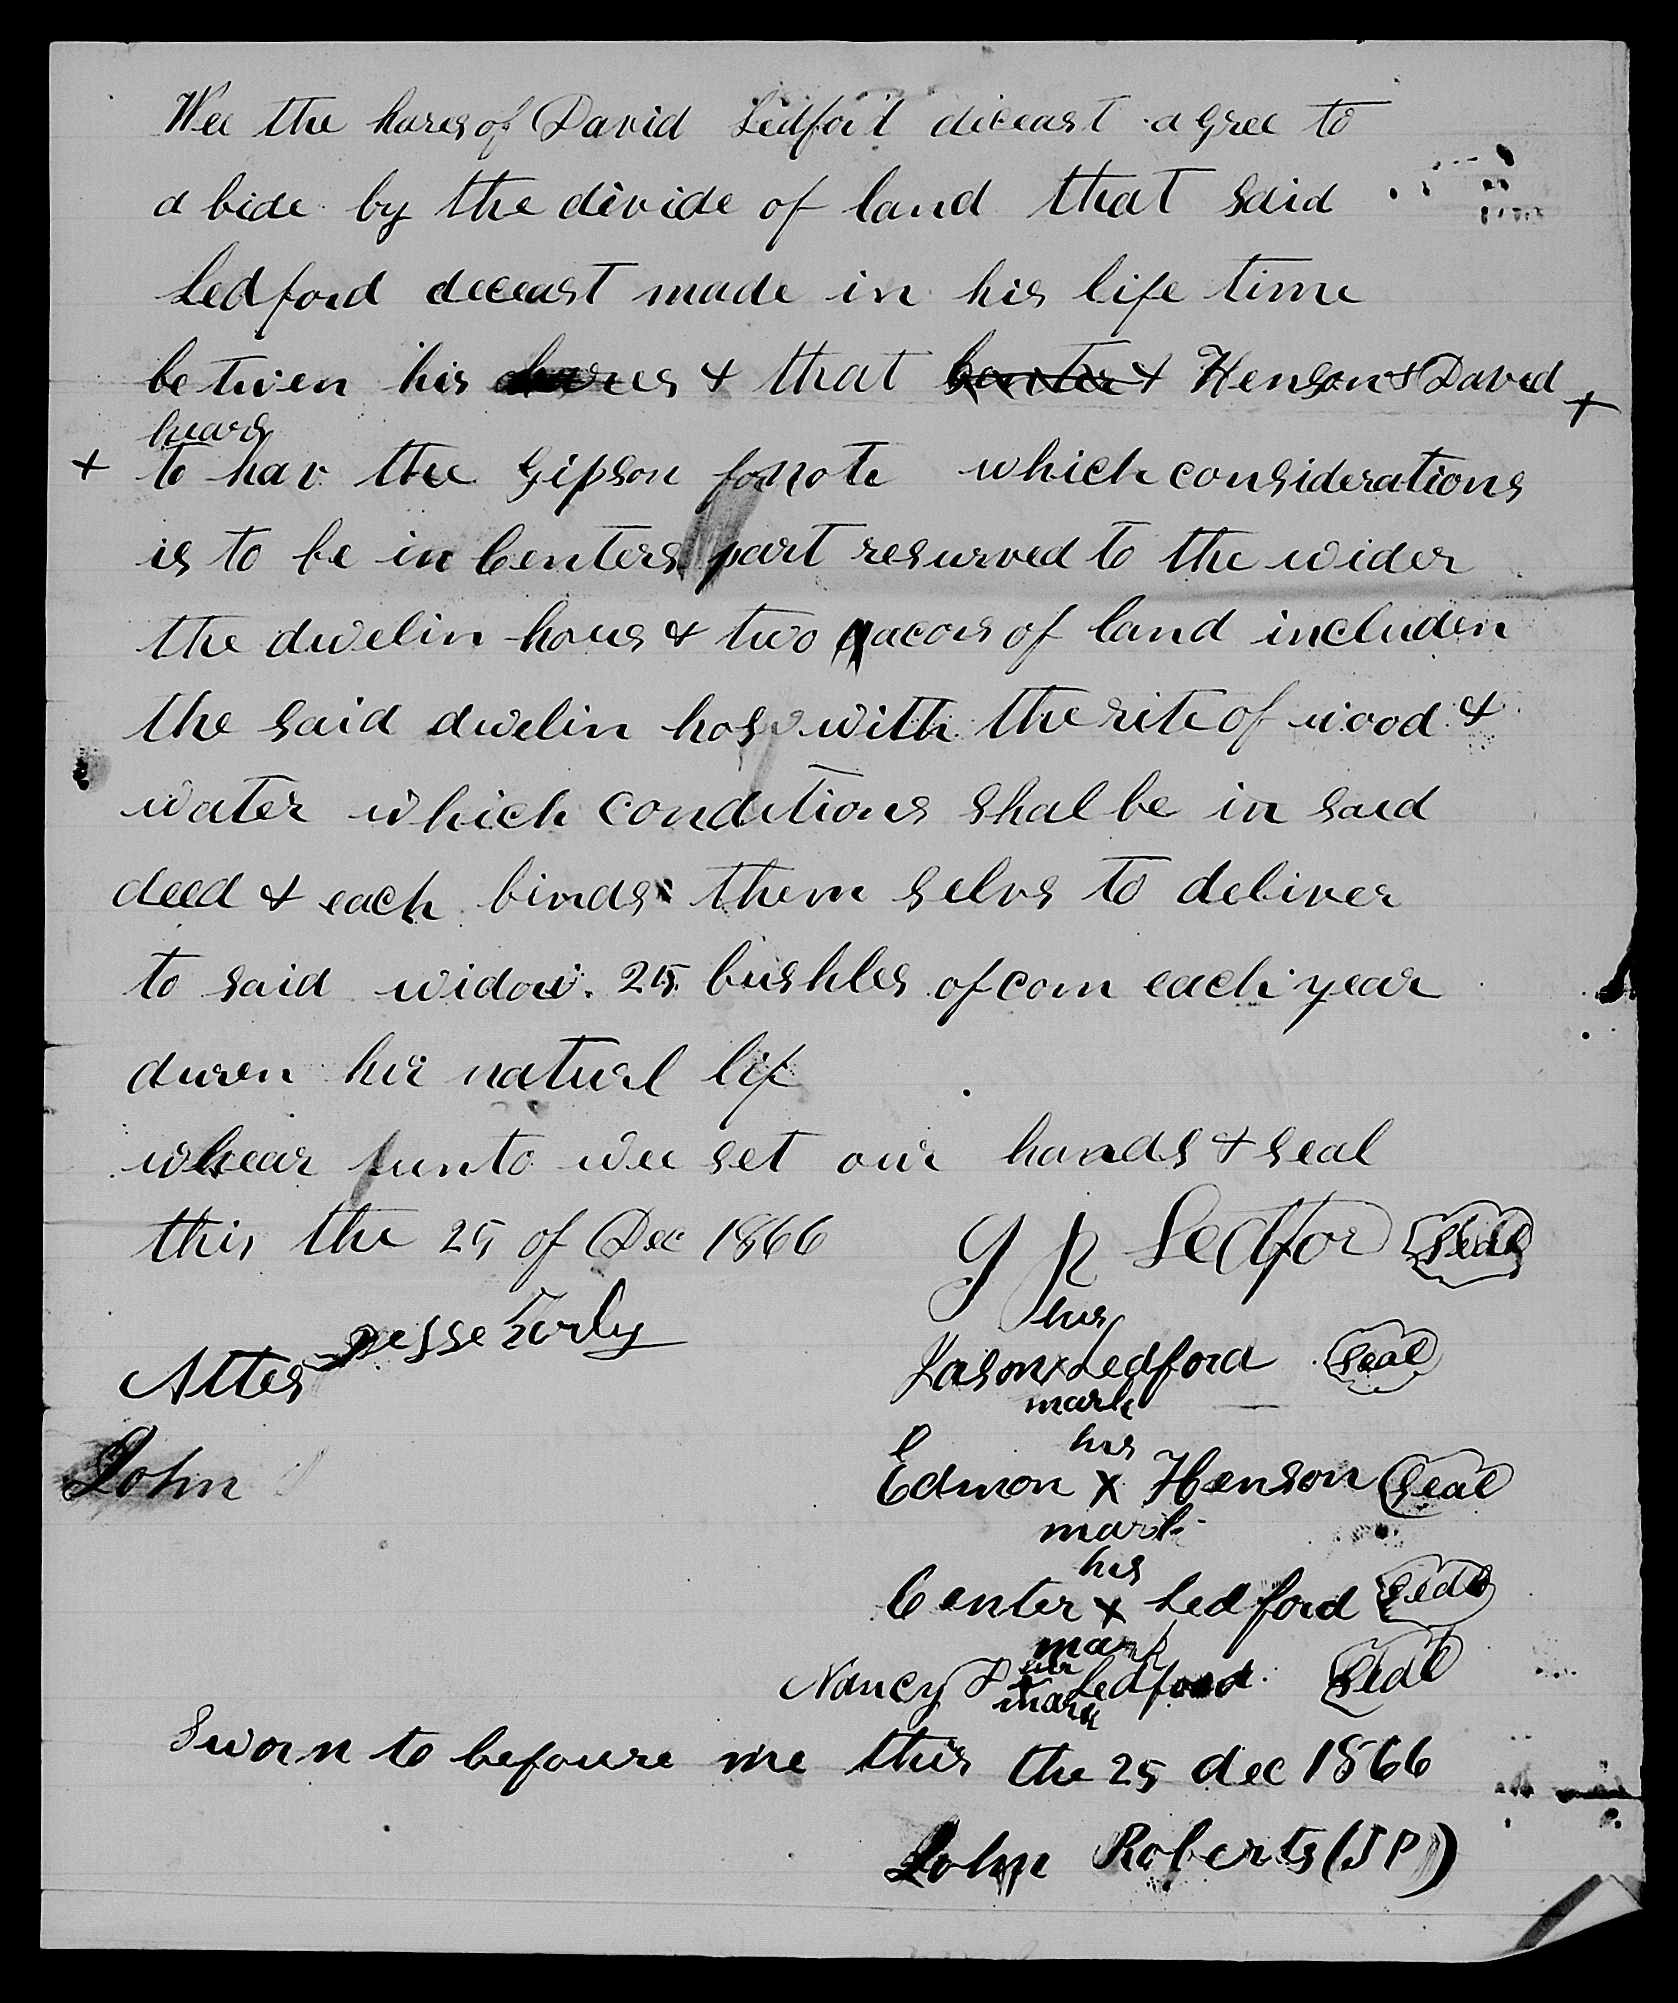 Wee the hares of David Ledford diceast agree to
a bide by the divide of land that said
Ledford deceast made in his life time
be twen his & that Henson & David +
hears
+ to hav the Gipson note which considerations
is to be in Centers part resurved to the wider
the dwelin hous & two acors of land includen
the said dwelin hos with the rite of wood &
water which conditions shal be in said
deed & each binds them selvs to deliver
to said widow. 25 bushles of corn each year
duren hir naturl lif
whear unto wee set our hands & seal
this the 25 of Dec 1866 J R Ledfor Seal
Attes Jesse
his
Jason x Ledford Seal
mark
John
his
Edmon X Henson Seal
mark
his
Center X Ledford Seal
mark
Nancy Ledford Seal
mark
Sworn to befoure me this the 25 dec 1866
John Roberts (JP)